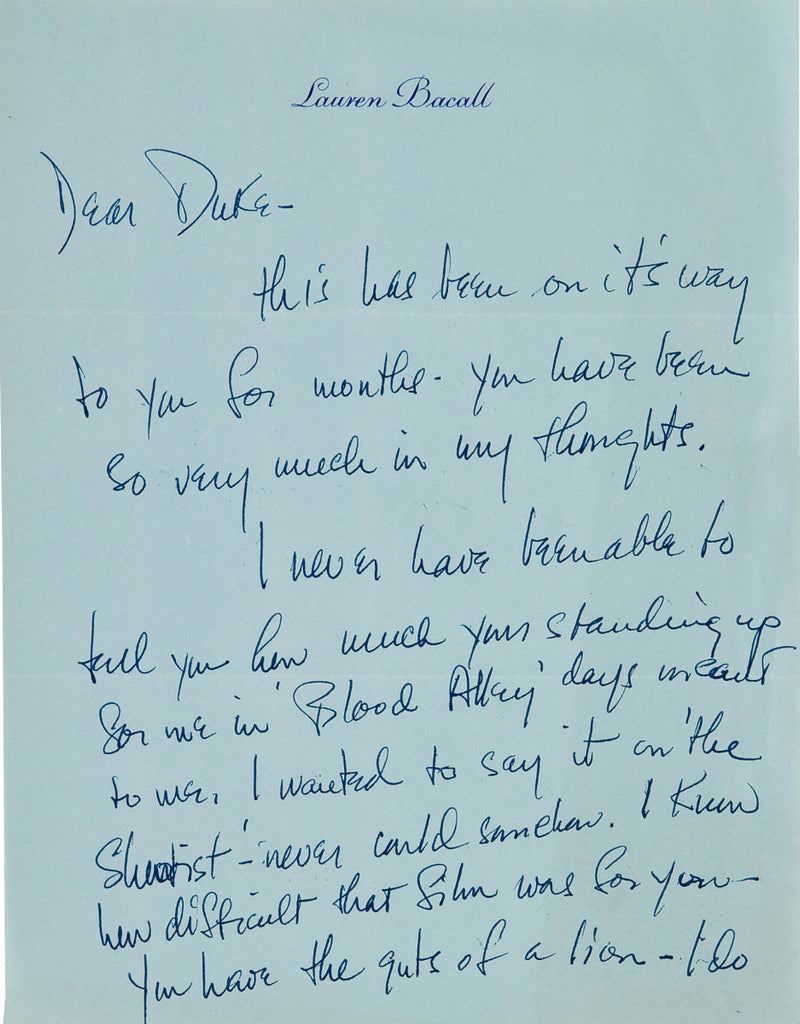 Lauren Bacall
Dear Duke-
this has been on it's way
to you for months - you have been
so very much in my thoughts.
I never have been able to
tell you how much your standing up
for me in 'Blood Alley' days meant
to me. I wanted to say it on 'the
Shootist' - never could somehow. I know
how difficult that film was for you -
you have the guts of a lion - I do